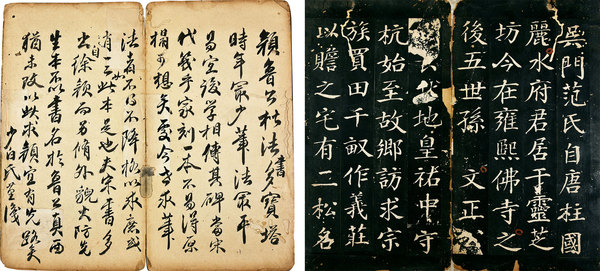 顏魯公楷法書多寶塔
時年最少筆法最平
易宜後學相傳其碑當宋
代幾乎家刻一本不易得原
搨可想矣今古承筆
法者不得不降格以求庶
此本是也夫宋書多
出徐顏而外貌大防先
生本不以書名於魯公具面
猶未改以此求顏宜有先路矣
少白氏識
吳門范氏自唐柱國
麗水府君居于靈芝
坊今在雍熙佛寺之
後五世孫 文正
代地皇祐中守
杭始至故鄉訪求宗
族買田千畝作義莊
以贍之宅有二松名